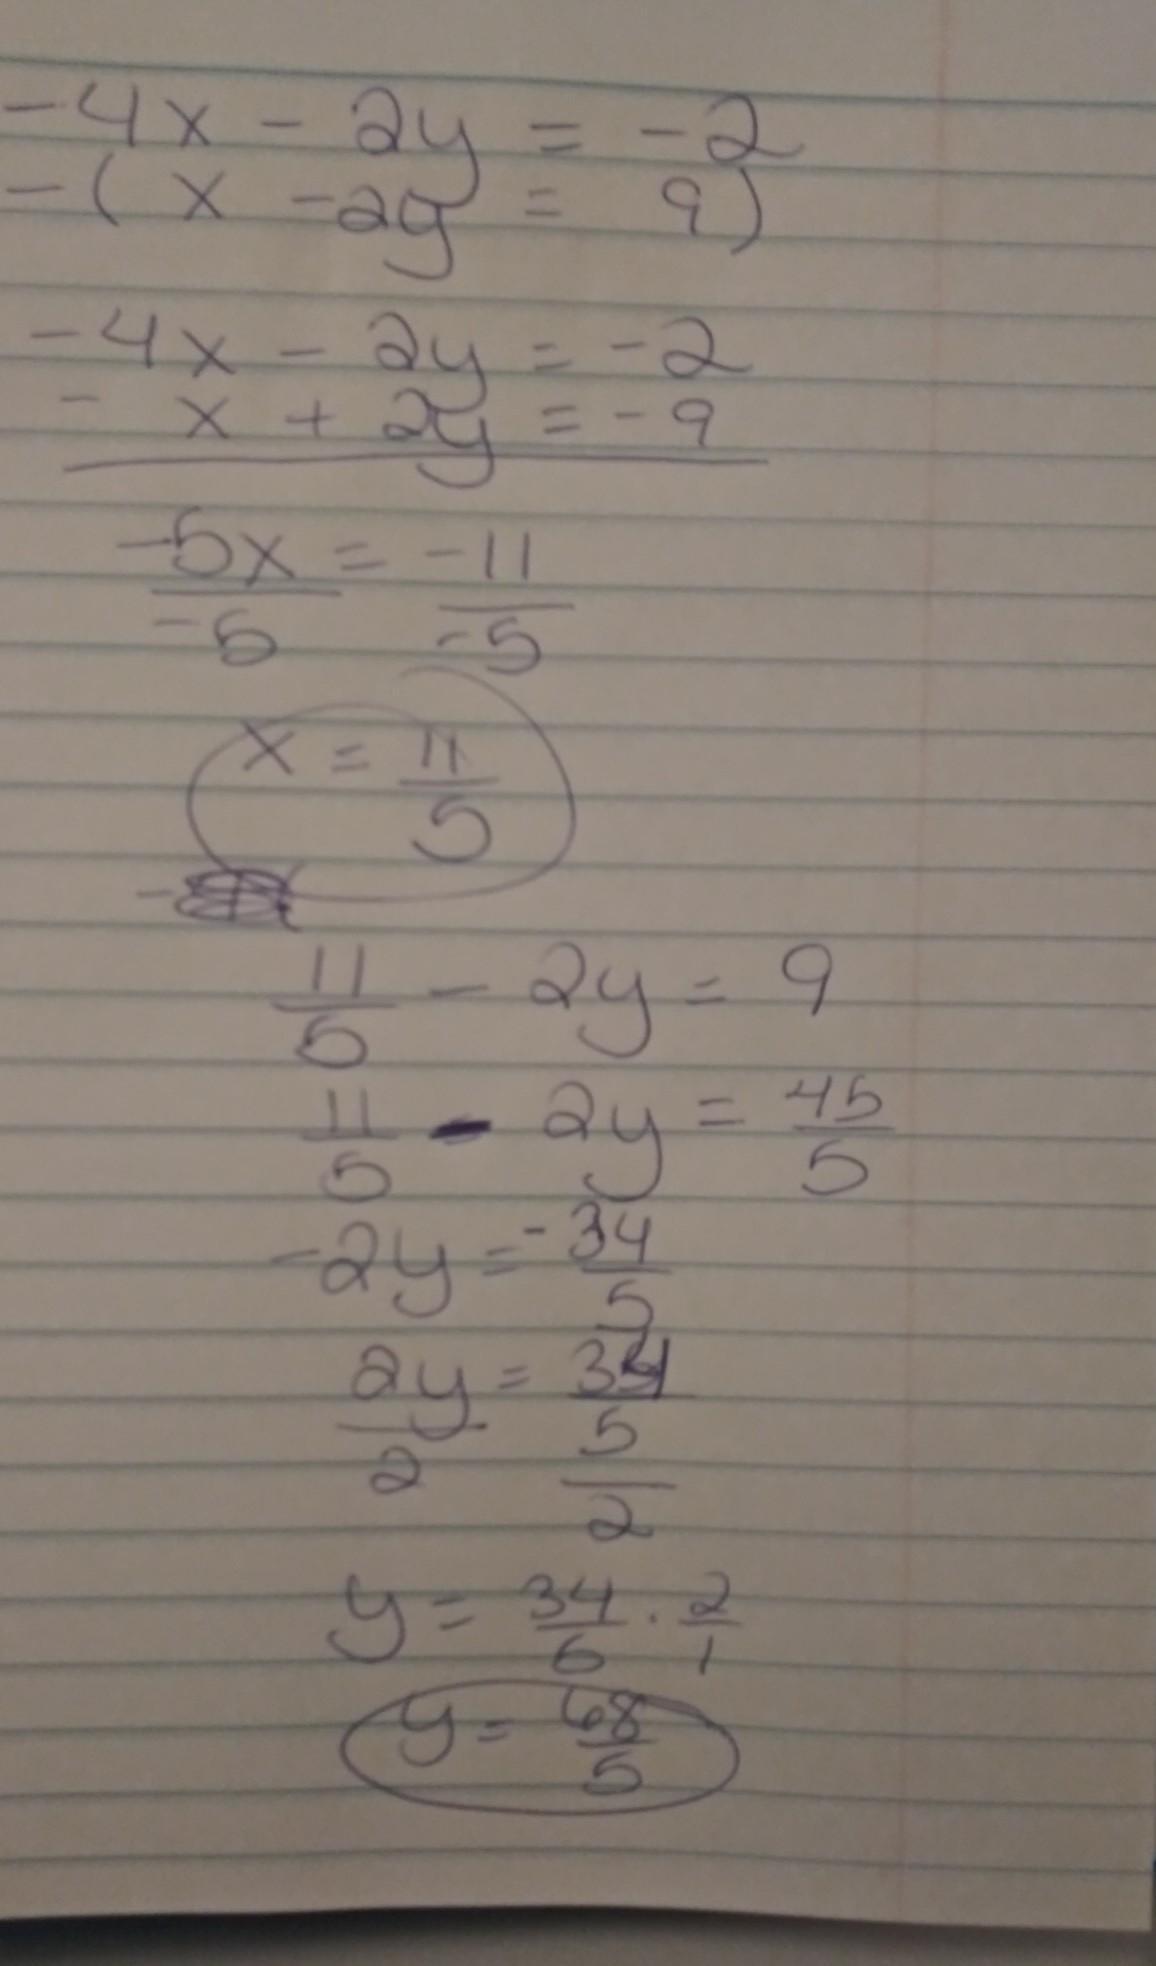 -4x - 2y = -2
-( x - 2y = 9)
-4x - 2y = -2
- x + 2y = -9
-5x = -11
-5 -5
x = 11/5
11/5 - 2y = 9
11/5 - 2y = 45/5
-2y = -34/5
2y = 34/5
2 2
y = 34/5 · 2/1
y = 68/5